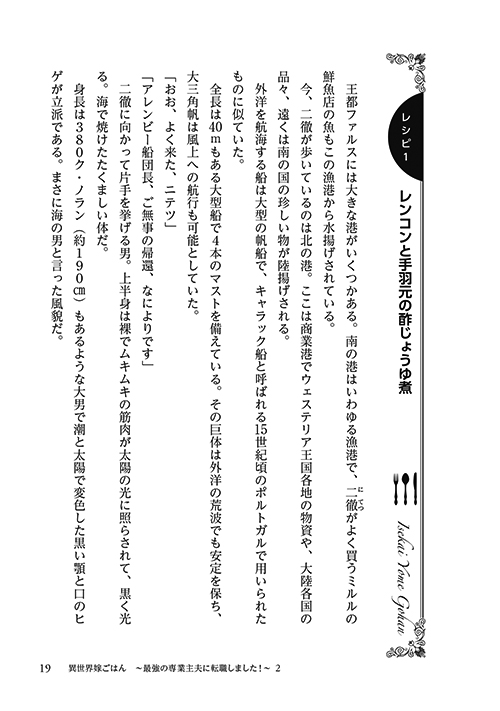 レシピ1
レンコンと手羽元の酢じょうゆ煮
Isekai Yome Gohan
王都ファルスには大きな港がいくつかある。南の港はいわゆる漁港で、二徹がよく買うミルルの
にてつ
鮮魚店の魚もこの漁港から水揚げされている。
今、二徹が歩いているのは北の港。ここは商業港でウェステリア王国各地の物資や、大陸各国の
品々、遠くは南の国の珍しい物が陸揚げされる。
外洋を航海する船は大型の帆船で、キャラック船と呼ばれる15世紀頃のポルトガルで用いられた
ものに似ていた。
全長は40mもある大型船で4本のマストを備えている。その巨体は外洋の荒波でも安定を保ち、
大三角帆は風上への航行も可能としていた。
「おお、よく来た、ニテツ」
「アレンビー船団長、ご無事の帰還、なによりです」
二徹に向かって片手を挙げる男。上半身は裸でムキムキの筋肉が太陽の光に照らされて、黒く光
る。海で焼けたたくましい体だ。
身長は380ク・ノラン（約190㎝）もあるような大男で潮と太陽で変色した黒い顎と口のヒ
ゲが立派である。まさに海の男と言った風貌だ。
19 異世界嫁ごはん ～最強の専業主夫に転職しました！～ 2